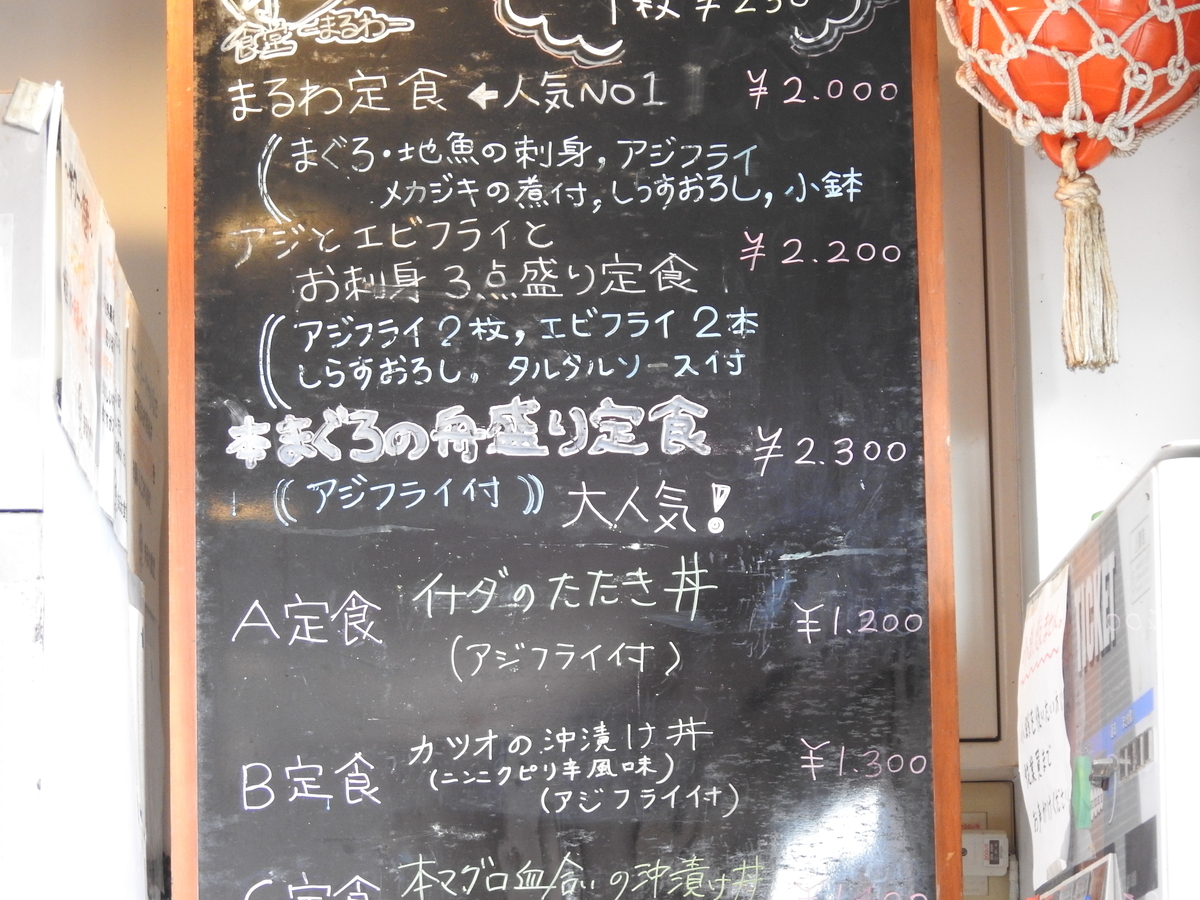 1枚 ¥250
食堂 まるわ
まるわ定食 ←人気NO1 ¥2.000
(まぐろ・地魚の刺身, アジフライ
メカジキの煮付, しらすおろし, 小鉢
アジとエビフライと
お刺身3点盛り定食 ¥2.200
(アジフライ2枚, エビフライ2本
しらすおろし, タルタルソース付
本まぐろの舟盛り定食 ¥2.300
((アジフライ付)) 大人気!
A定食 イナダのたたき丼 ¥1.200
(アジフライ付)
B定食 カツオの沖漬け丼 ¥1.300
(ニンニクピリ辛風味)
(アジフライ付)
C定食 本マグロ血合いの沖漬け丼
TICKET